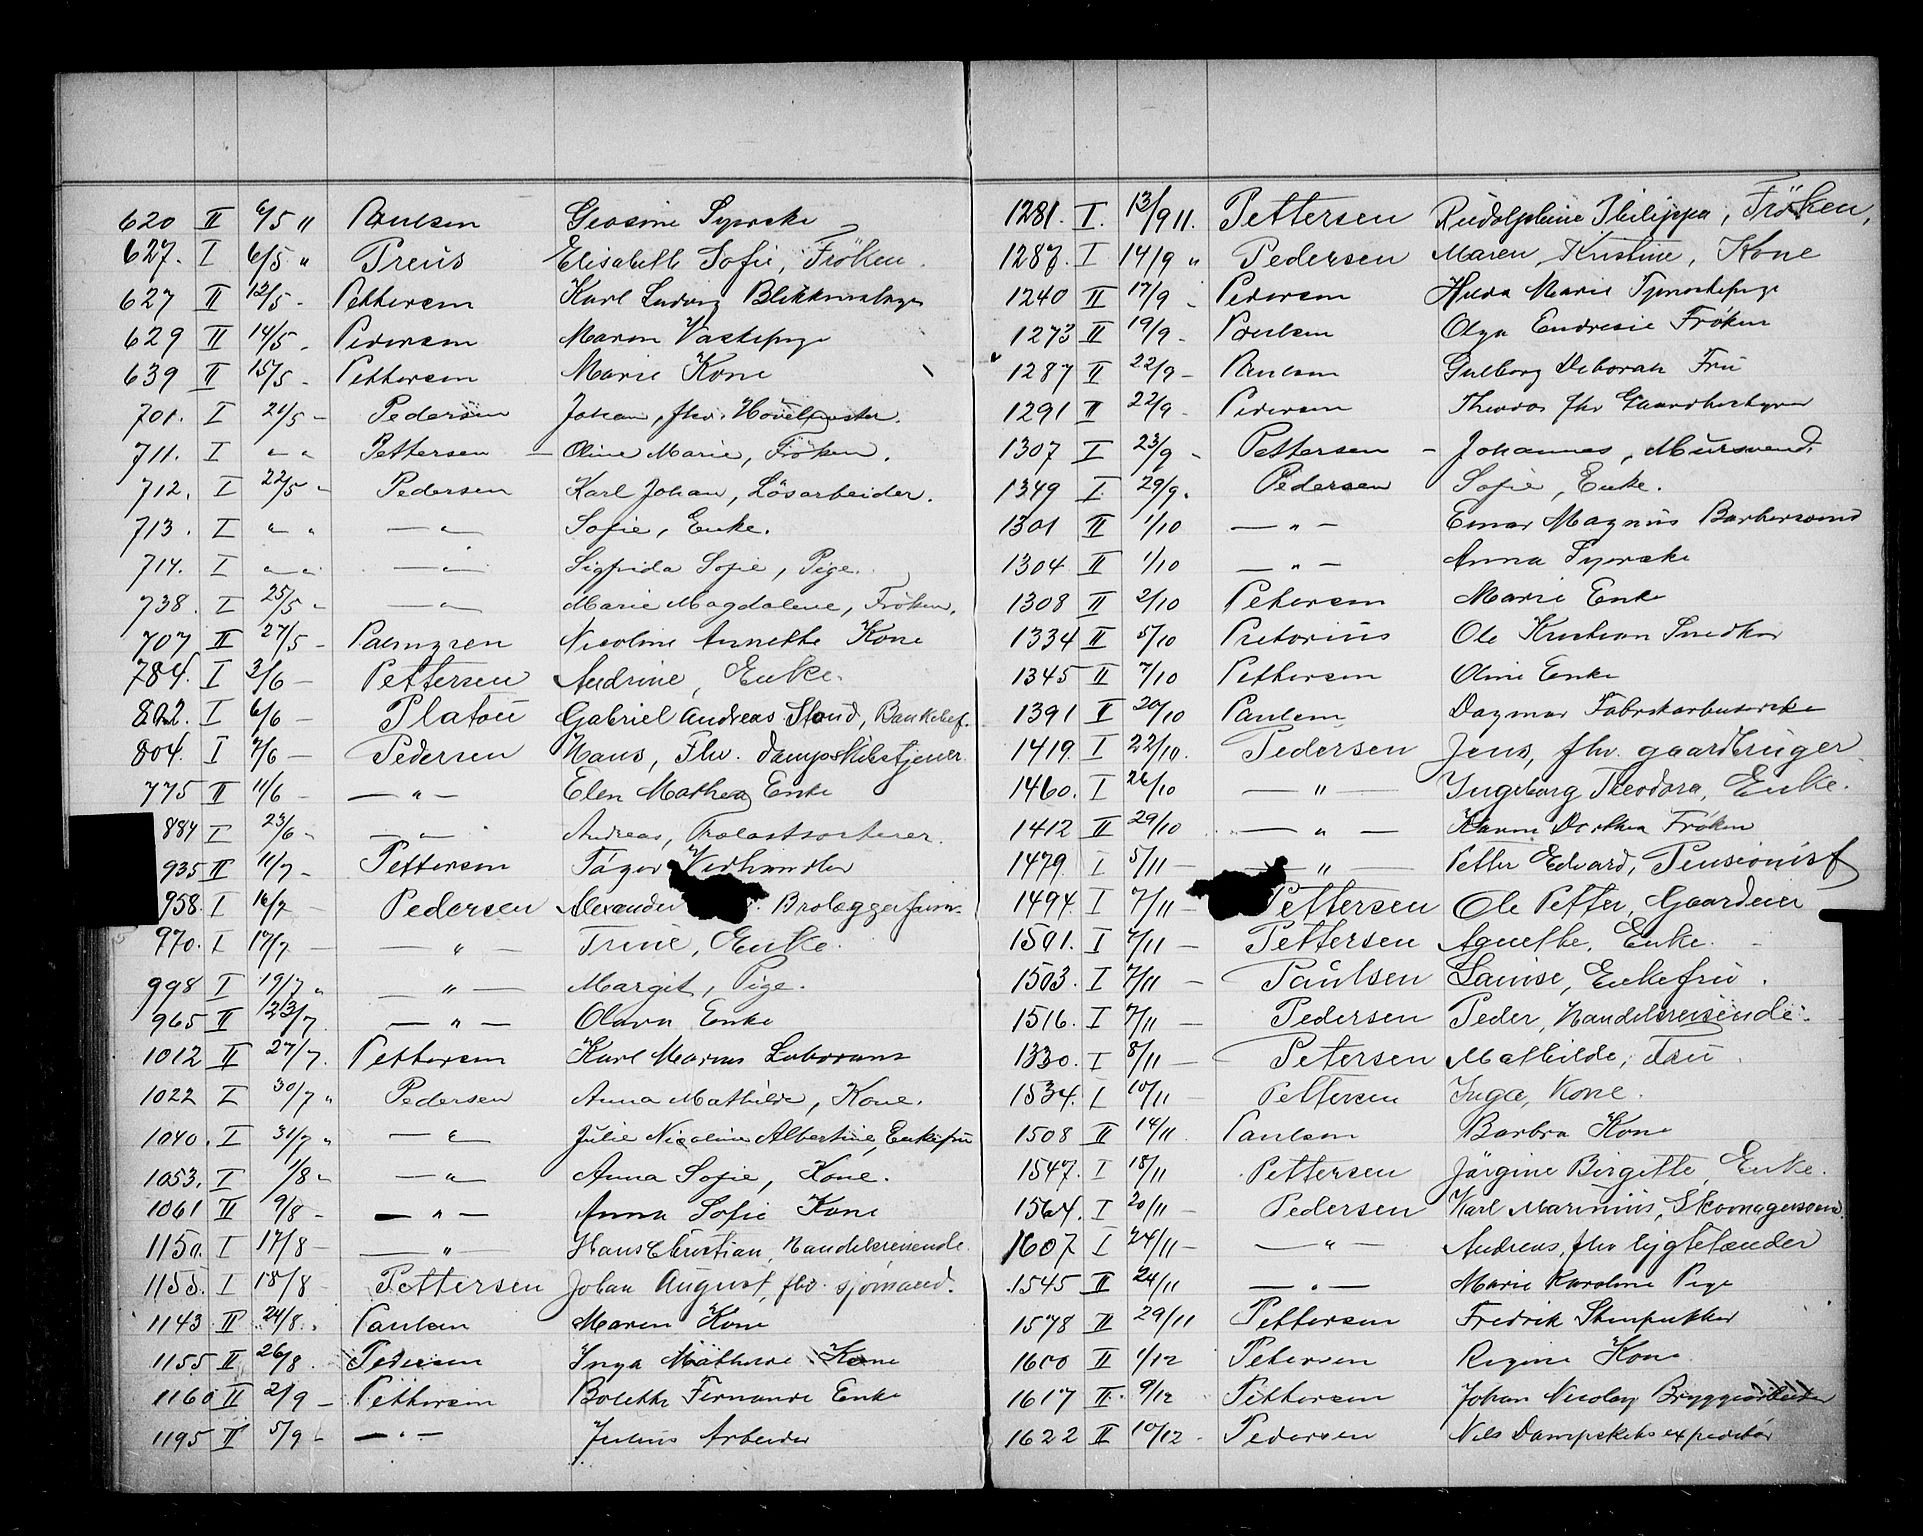 620 II 6/5 " Paulsen Geosine Syerske
627. I 6/5 " Preus Elisabeth Sofie, Fröken.
627 II 12/5 - Pettersen Karl Ludvig Blikkenslager
629 II 14/5 - Pedersen Maren Vaskepige
639 II 15/5 - Pettersen Marie Kone
701. I 21/5 - Pedersen Johan, fhv.
711. I " " Pettersen - Oline Marie, Fröken.
712. I 22/5 - Pedersen Karl Johan, Lösarbeider.
713. I " " — " — Sofie, Enke.
714. I " " — " — Sigfrida Sofie, Pige.
738. I 25/5 " — " — Marie Magdalene, Fröken.
707 II 27/5 - Palmgren Nicoline Annethe Kone
784. I 3/6 — Pettersen Andrine, Enke.
802. I 6/6 — Platou Gabriel Andreas Stoud, Bankchef.
804. I 7/6 — Pedersen Hans, Fhv. Dampskibstjener.
775 II 11/6 - — " — Elen Mathea Enke
884 I 23/6 - — " — Andreas, Trælastsorterer.
935 II 11/7 - Pettersen Vedhandler
958. I 16/7 - Pedersen Alexander Brolæggerform.
970. I 17/7 — — " — Trine, Enke.
998 I 19/7 " — " — Margit, Pige.
965 II 23/7. — " — Olava Enke
1012 II 27/7. Pettersen Karl Marius Laborant
1022 I 30/7 " Pedersen Anna Mathilde, Kone.
1040. I 31/7 " — " — Julie Nicoline Albertine, Enkefru
1053. I 1/8 " — " — Anna Sofie, Kone.
1061 II 9/8 - — " — Anna Sofie Kone
1150. I 17/8 — — " — Hans Christian, Handelsreisende.
1155. I 18/8 — Pettersen Johan August, fhv. sjömand.
1143 II 24/8. Paulsen Maren Kone
1155 II 26/8. Pedersen Inga Mathilde Kone
1160 II 2/9 - Pettersen Bolette Fernande Enke
1195 II 5/9 - — " — Julius Arbeider
1281. I. 13/9 11. Pettersen Rudolphine Philippa, Fröken,
1287. I 14/9 " Pedersen Maren Kristine, Kone
1240 II 17/9 - Pedersen Hilda Marie Tjenestepige
1273 II 19/9 - Poulsen Olga Endresie Frøken
1287 II 22/9 - Paulsen Gulborg Deborah Fru
1291 II 22/9 - Pedersen Theodor fhv Gaardbestyrer
1307 I 23/9 - Pettersen - Johannes, Mursvend.
1349 I. 29/9. Pedersen Sofie, Enke.
1301 II 1/10 — " — Einar Magnus Barbersvend
1304 II 1/10 — " — Anna Syerske
1308 II 2/10 Petersen Marie Enke
1334 II 5/10 Pretorius Ole Kristian Snedker
1345 II 7/10 Pettersen Oline Enke
1391 II 20/10 Paulsen Dagmar Fabrikarbeiderske
1419. I 22/10. Pedersen Jens, fhv. gaardbruger
1460. I 26/10 — " — Ingeborg Theodora, Enke.
1412 II 29/10 — " — Karen Dorthea Frøken
1479 I 5/11 — — " — Petter Edvard, Pensionist
1494. I 7/11 — Pettersen Ole Petter, Gaardeier
1501. I 7/11 — Pettersen Agnethe, Enke. -
1503. I 7/11 — Paulsen Louise, Enkefru.
1516. I 7/11 — Pedersen Peder, Handelsreisende.
1330. I 8/11 — Petersen Mathilde, Fru.
1534. I 10/11 — Pettersen Inga, Kone.
1508 II 14/11. Paulsen Barbra Kone
1547. I 18/11 Pettersen Jörgine Birgitte, Enke.
1564. I 20/11 — Pedersen Karl Marinius, Skomagersvend.
1607 I 24/11 — — " — Andreas, fhv lygtetænder
1545 II 24/11 — " — Marie Karoline Pige
1578 II 29/11 Pettersen Fredrik Stenpukker
1600 II 1/12 Petersen Regine Kone
1617 II. 9/12 Pettersen Johan Nicolay Bryggearbeider
1622 II 10/12 - Pedersen Nils Dampskibsexpeditör